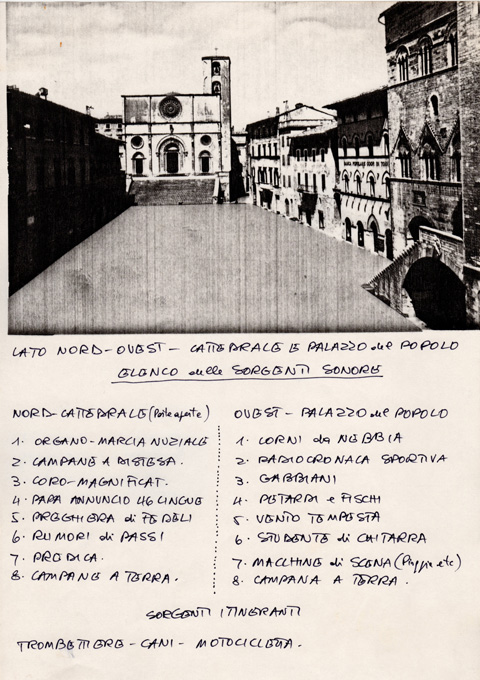 LATO NORD-OVEST - CATTEDRALE E PALAZZO del POPOLO
ELENCO delle SORGENTI SONORE
NORD-CATTEDRALE (Porte aperte)
1. ORGANO-MARCIA NUZIALE
2. CAMPANE A DISTESA.
3. CORO-MAGNIFICAT.
4. PAPA ANNUNCIO 46 LINGUE
5. PREGHIERA di FEDELI
6. RUMORI di PASSI
7. PREDICA.
8. CAMPANE A TERRA.
OVEST - PALAZZO del POPOLO
1. CORNI da NEBBIA
2. RADIOCRONACA SPORTIVA
3. GABBIANI
4. PETARDI e FISCHI
5. VENTO TEMPESTA
6. STUDENTE di CHITARRA
7. MACCHINE di SCENA (Pioggia etc)
8. CAMPANA A TERRA.
SORGENTI ITINERANTI
TROMBETTIERE - CANI - MOTOCICLETTA.